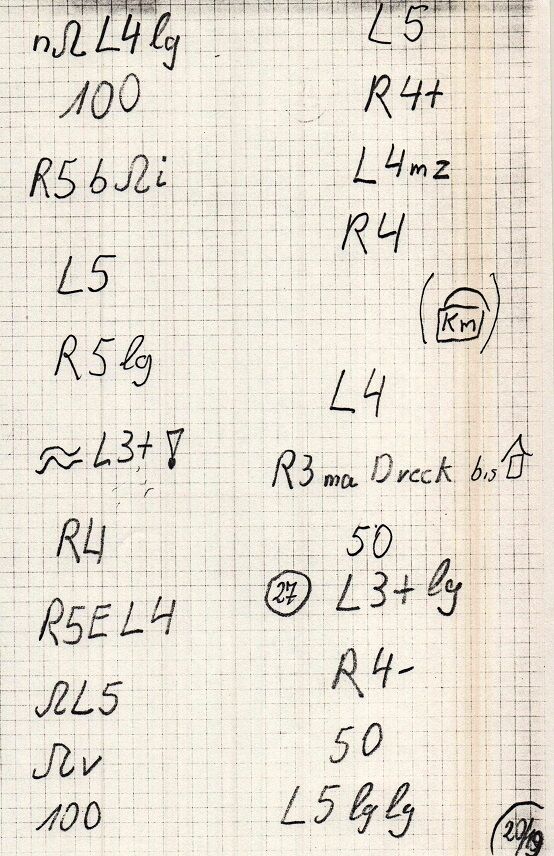 nΩL4lg
100
R5bΩi
L5
R5lg
≈L3+!
R4
R5EL4
ΩL5
Ωv
100
L5
R4+
L4mz
R4
(Km)
L4
R3ma Dreck bis ⇧
50
27 L3+lg
R4-
50
L5lglg